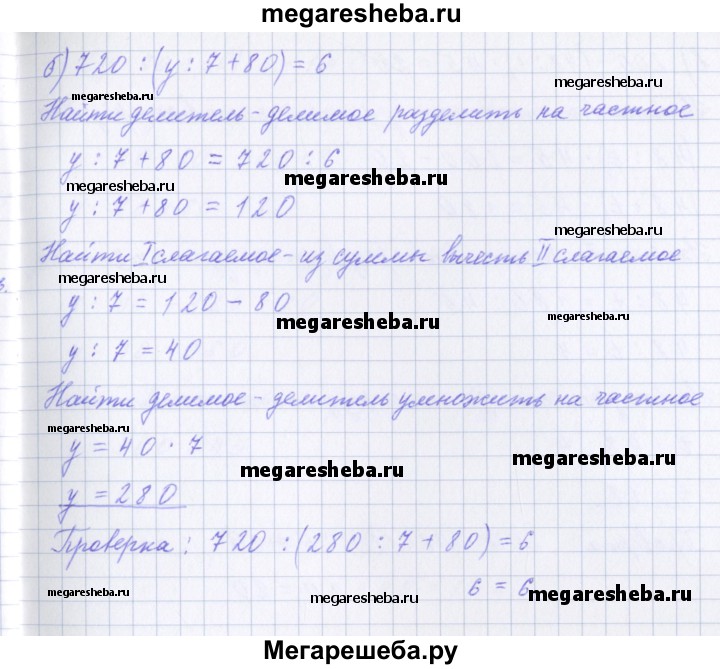 megaresheba.ru
б) 720 : (y : 7 + 80) = 6
megaresheba.ru
megaresheba.ru
Найти делитель - делимое разделить на частное
y : 7 + 80 = 720 : 6
megaresheba.ru
megaresheba.ru
y : 7 + 80 = 120
megaresheba.ru
Найти I слагаемое - из суммы вычесть II слагаемое
megaresheba.ru
y : 7 = 120 - 80
megaresheba.ru
megaresheba.ru
y : 7 = 40
Найти делимое - делитель умножить на частное
megaresheba.ru
y = 40 · 7
megaresheba.ru
megaresheba.ru
y = 280
Проверка : 720 : (280 : 7 + 80) = 6
6 = 6
megaresheba.ru
megaresheba.ru
megaresheba.ru
Мегарешеба.ру